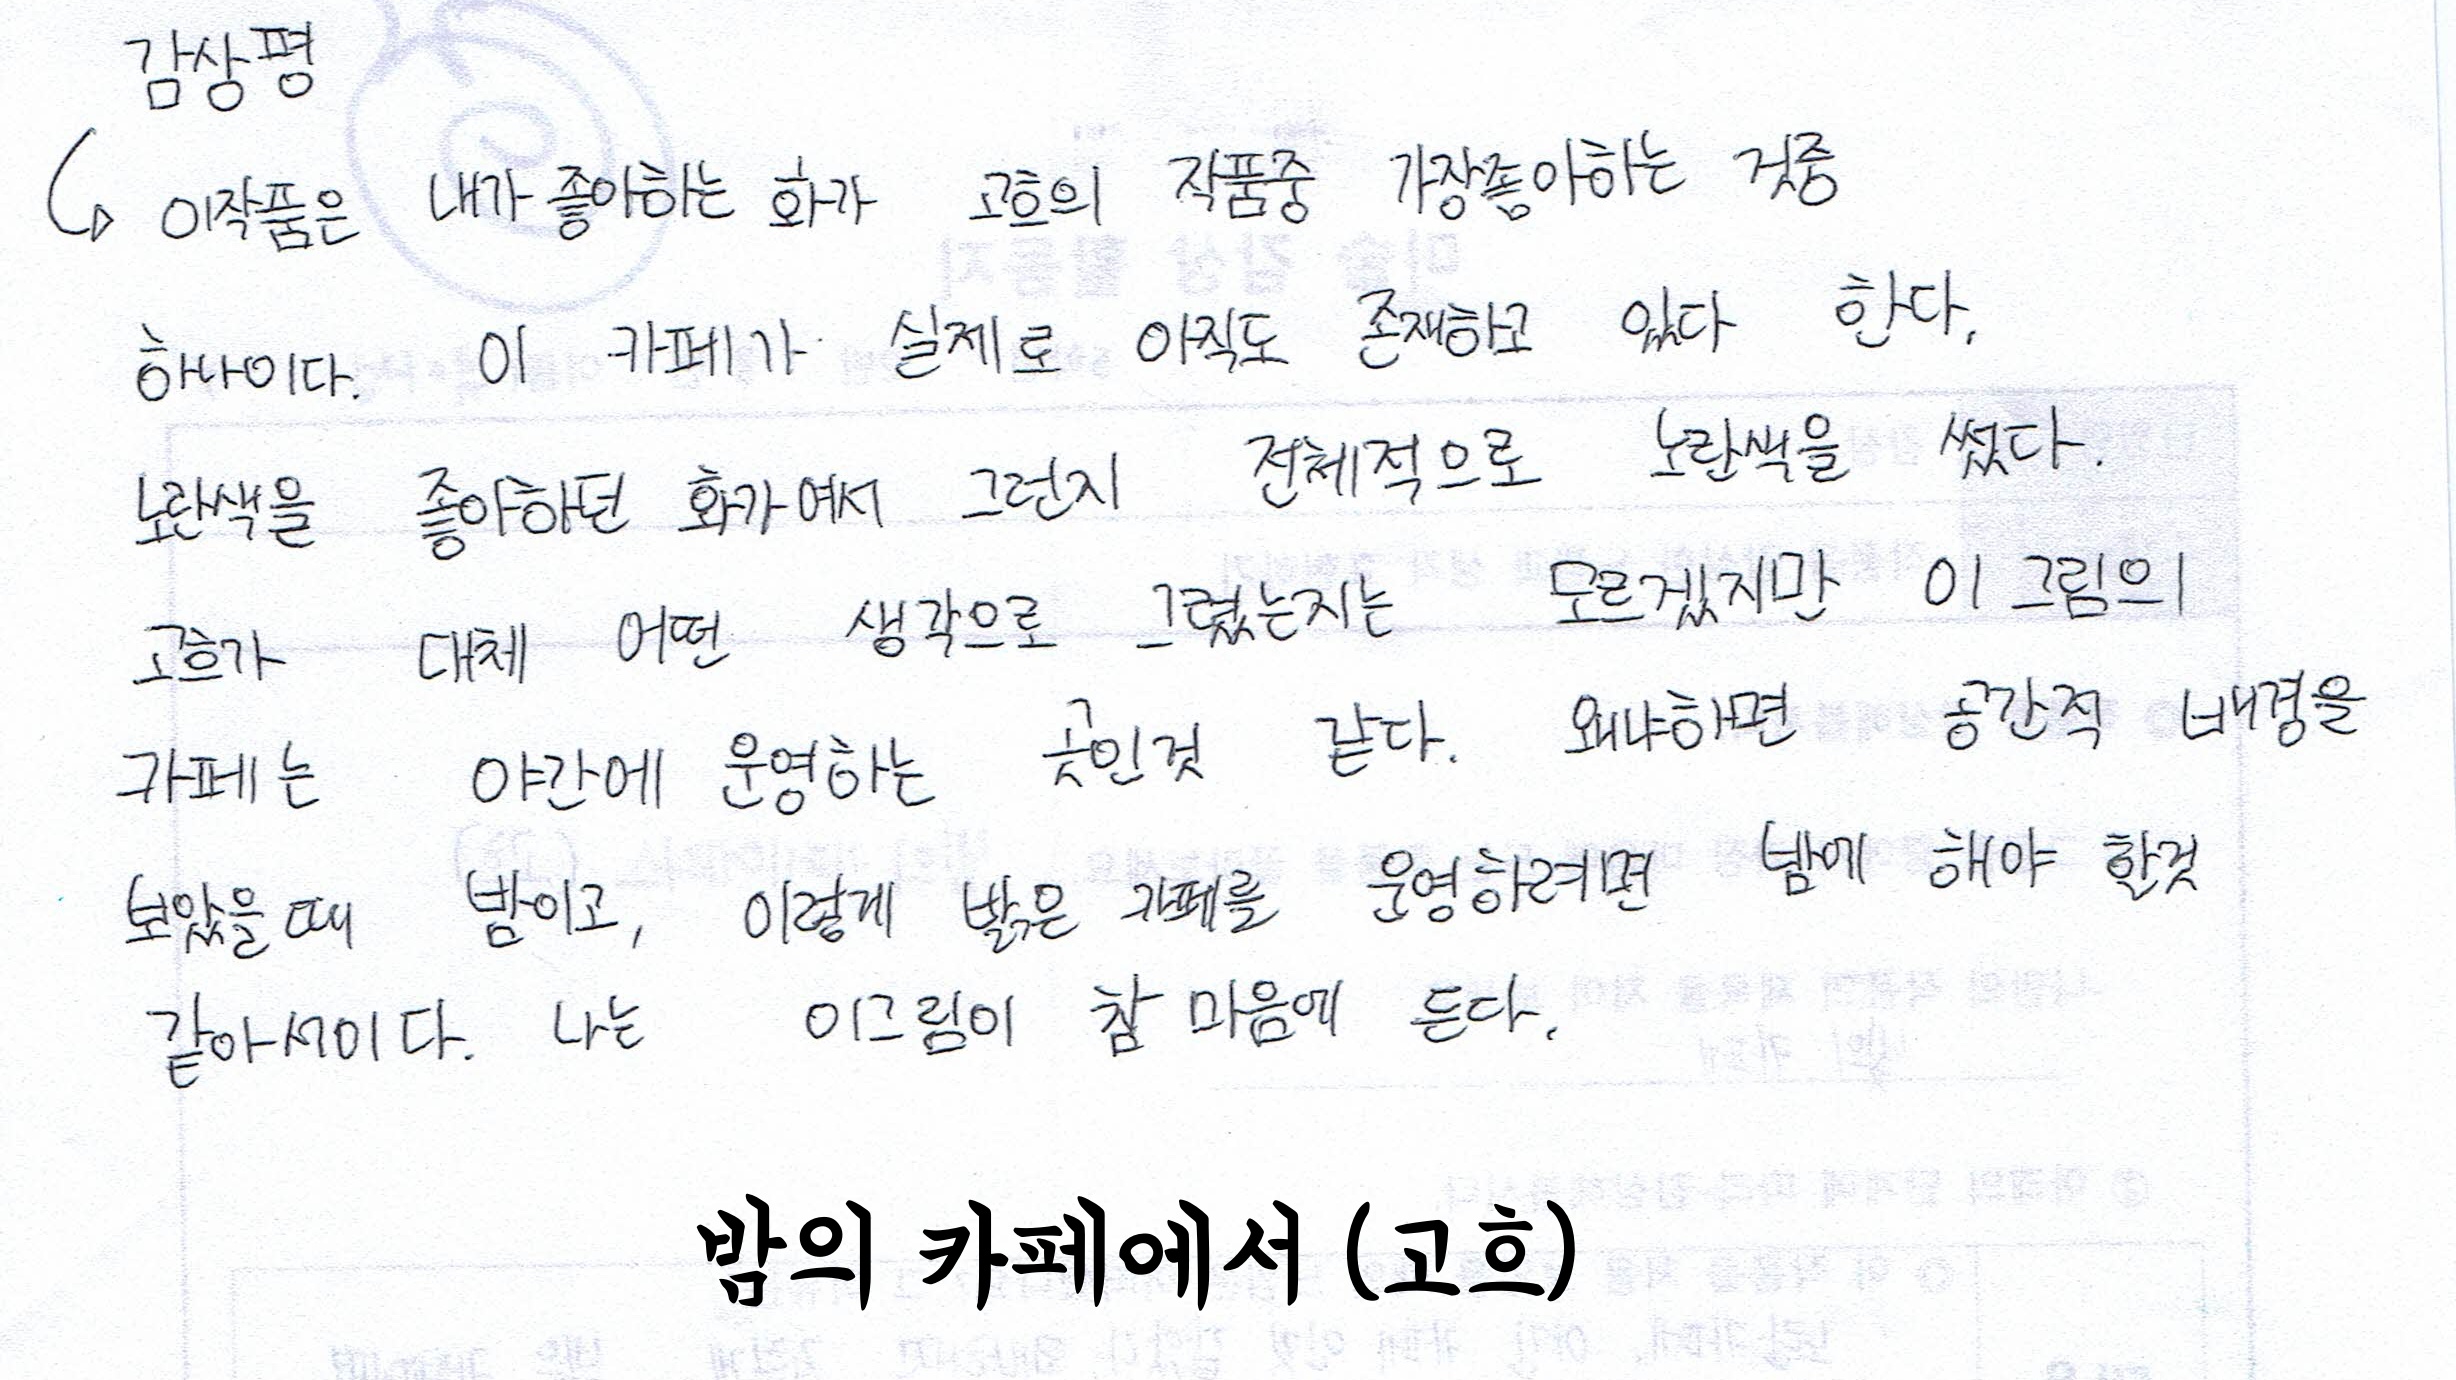 감상평
이작품은 내가 좋아하는 화가 고흐의 작품중 가장좋아하는 것중
하나이다. 이 카페가 실제로 아직도 존재하고 있다 한다.
노란색을 좋아하던 화가여서 그런지 전체적으로 노란색을 썼다.
고흐가 대체 어떤 생각으로 그렸는지는 모르겠지만 이 그림의
카페는 야간에 운영하는 곳인것 같다. 왜냐하면 공간적 배경을
보았을때 밤이고, 이렇게 밝은 카페를 운영하려면 밤에 해야 한것
같아서이다. 나는 이그림이 참 마음에 든다.
밤의 카페에서 (고흐)